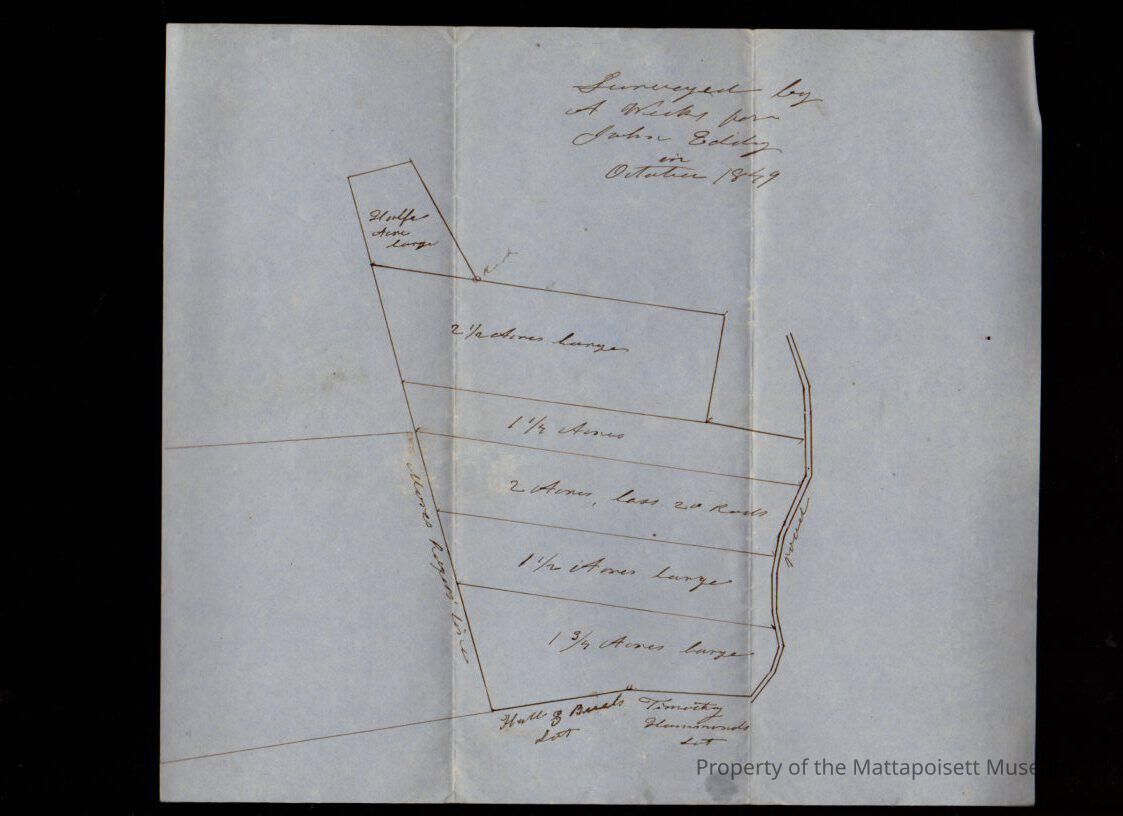 Surveyed by
A Weeks for
John Eddy
in
October 1849
Halfe
Acre
large
2 1/2 Acres large
1 1/4 Acres
2 Acres, lass 20 Rods
1 1/2 Acres large
1 3/4 Acres large
road
Line
Hall &
Lot
Timothy
Hammonds
Lot
Property of the Mattapoisett Muse